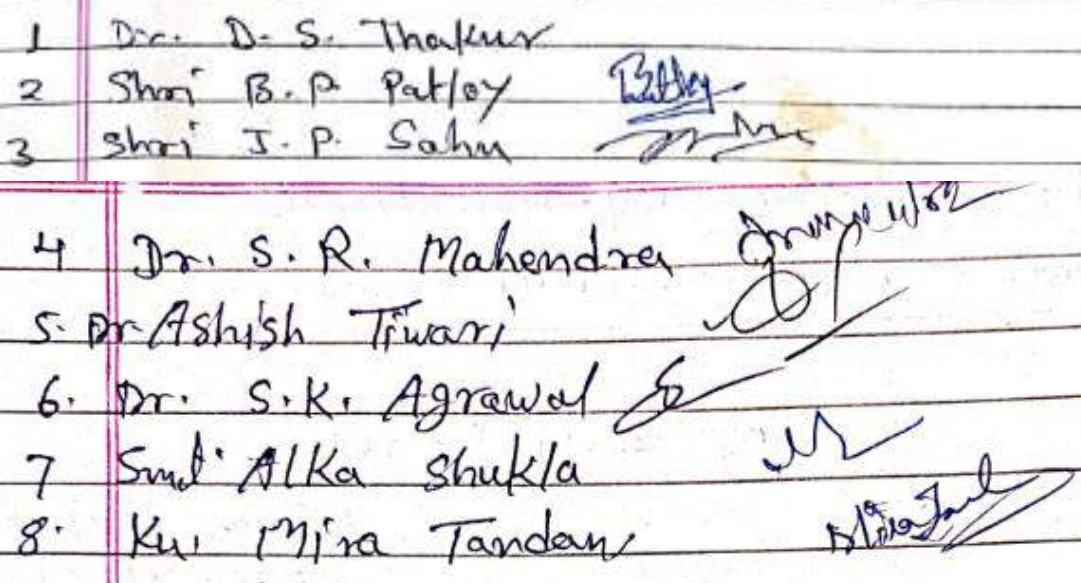 1 Dr. D. S. Thakur
2 Shri B. P. Patley
3 Shri J. P. Sahu
4 Dr. S. R. Mahendra
5. Dr. Ashish Tiwari
6. Dr. S. K. Agrawal
7 Smt. Alka Shukla
8. Ku. Mira Tandan